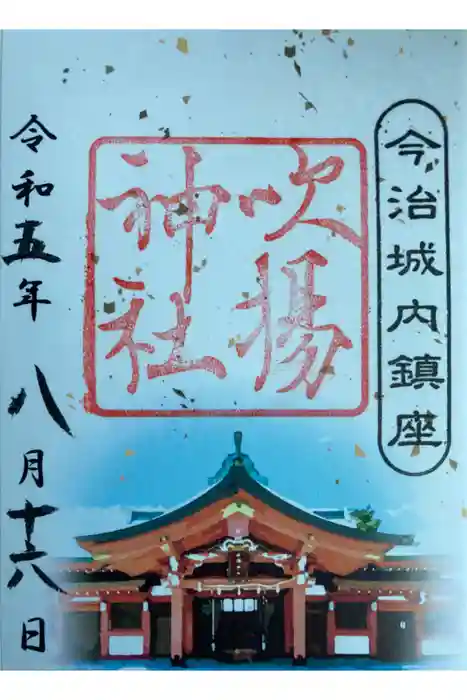 今治城内鎮座
吹揚
神社
令和五年 八月十六日